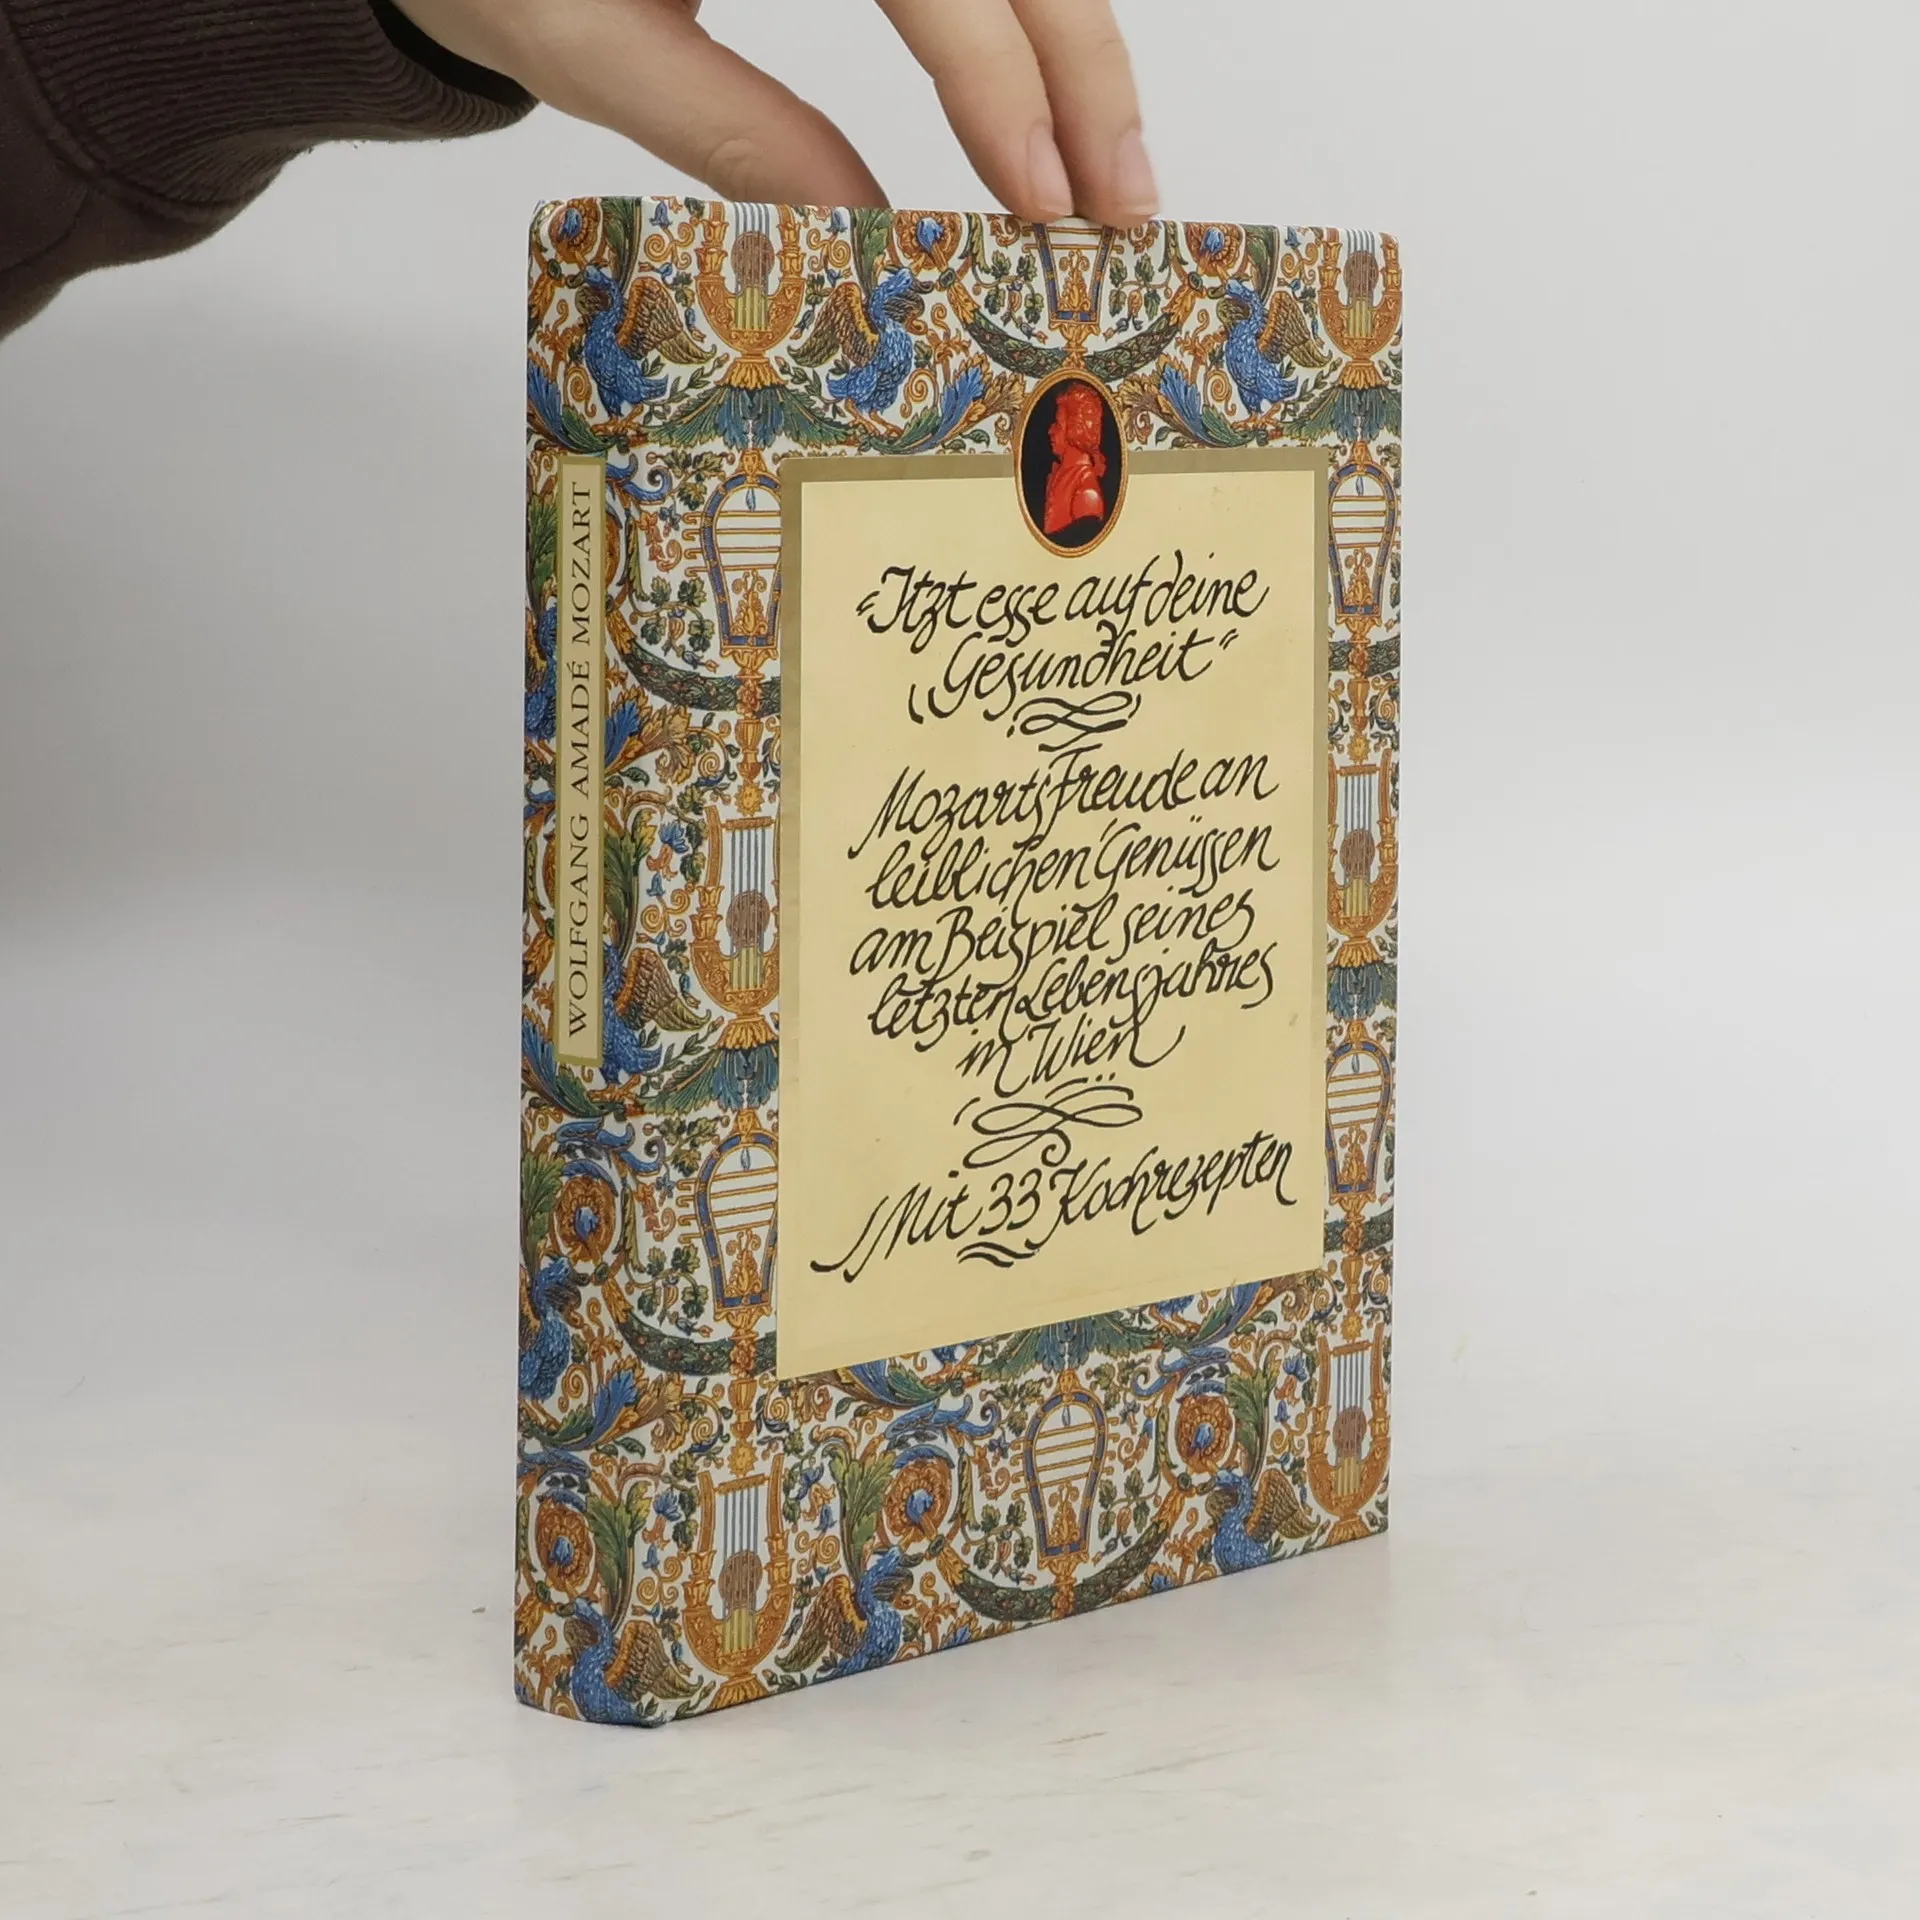 WOLFGANG AMADÉ MOZART
"Itzt esse auf deine
Gesundheit"
Mozarts Freude an
leiblichen Genüssen
am Beispiel seines
letzten Lebensjahres
in Wien
Mit 33 Kochrezepten